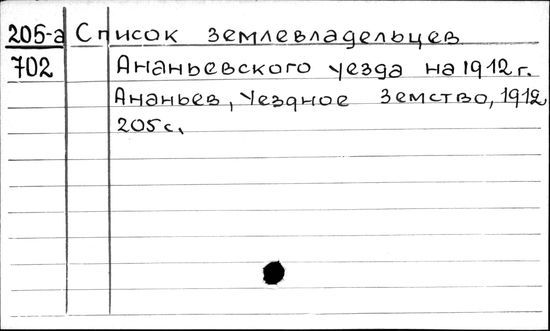 205-а Список землевладельцев
702 Ананьевского уезда на 1912 г.
Ананьев, Уездное Земство, 1912
205 с.